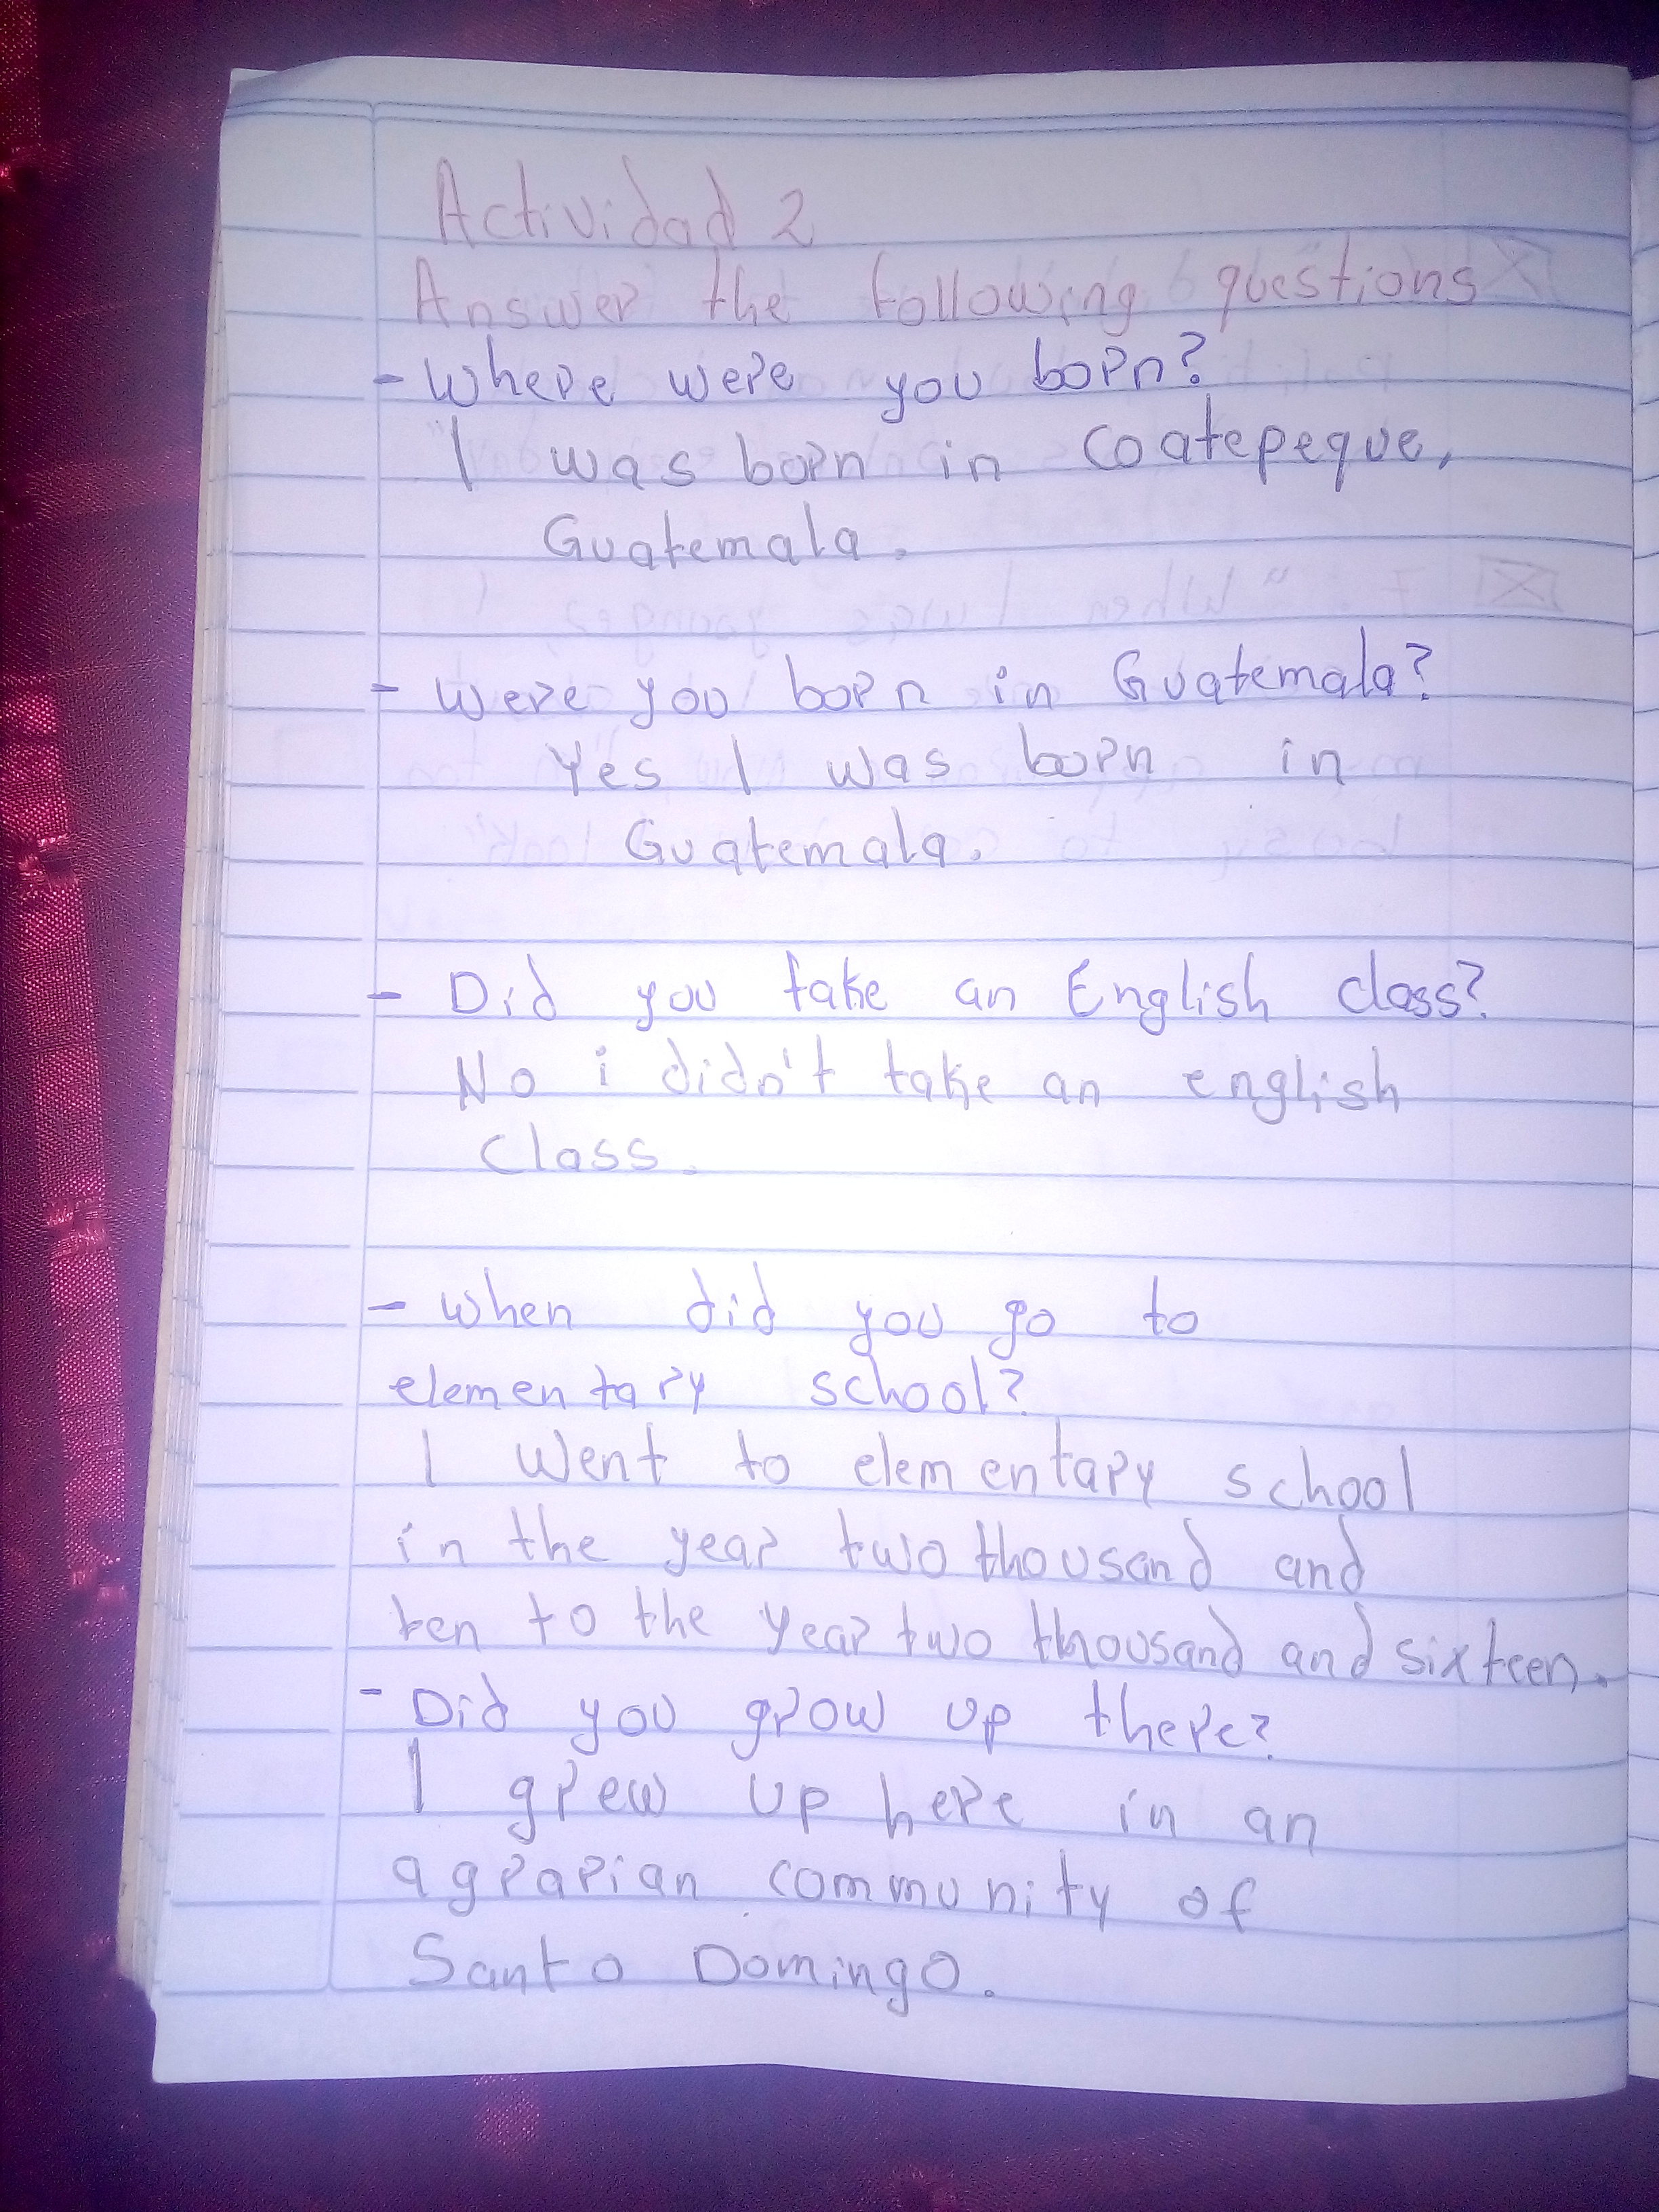 Actividad 2
Answer the following questions
- Where were you born?
I was born in Coatepeque,
Guatemala.
- Were you born in Guatemala?
Yes I was born in
Guatemala.
- Did you take an English class?
No i didn't take an english
class.
- When did you go to
elementary school?
I went to elementary school
in the year two thousand and
ten to the year two thousand and sixteen.
- Did you grow up there?
I grew up here in an
agrarian community of
Santo Domingo.